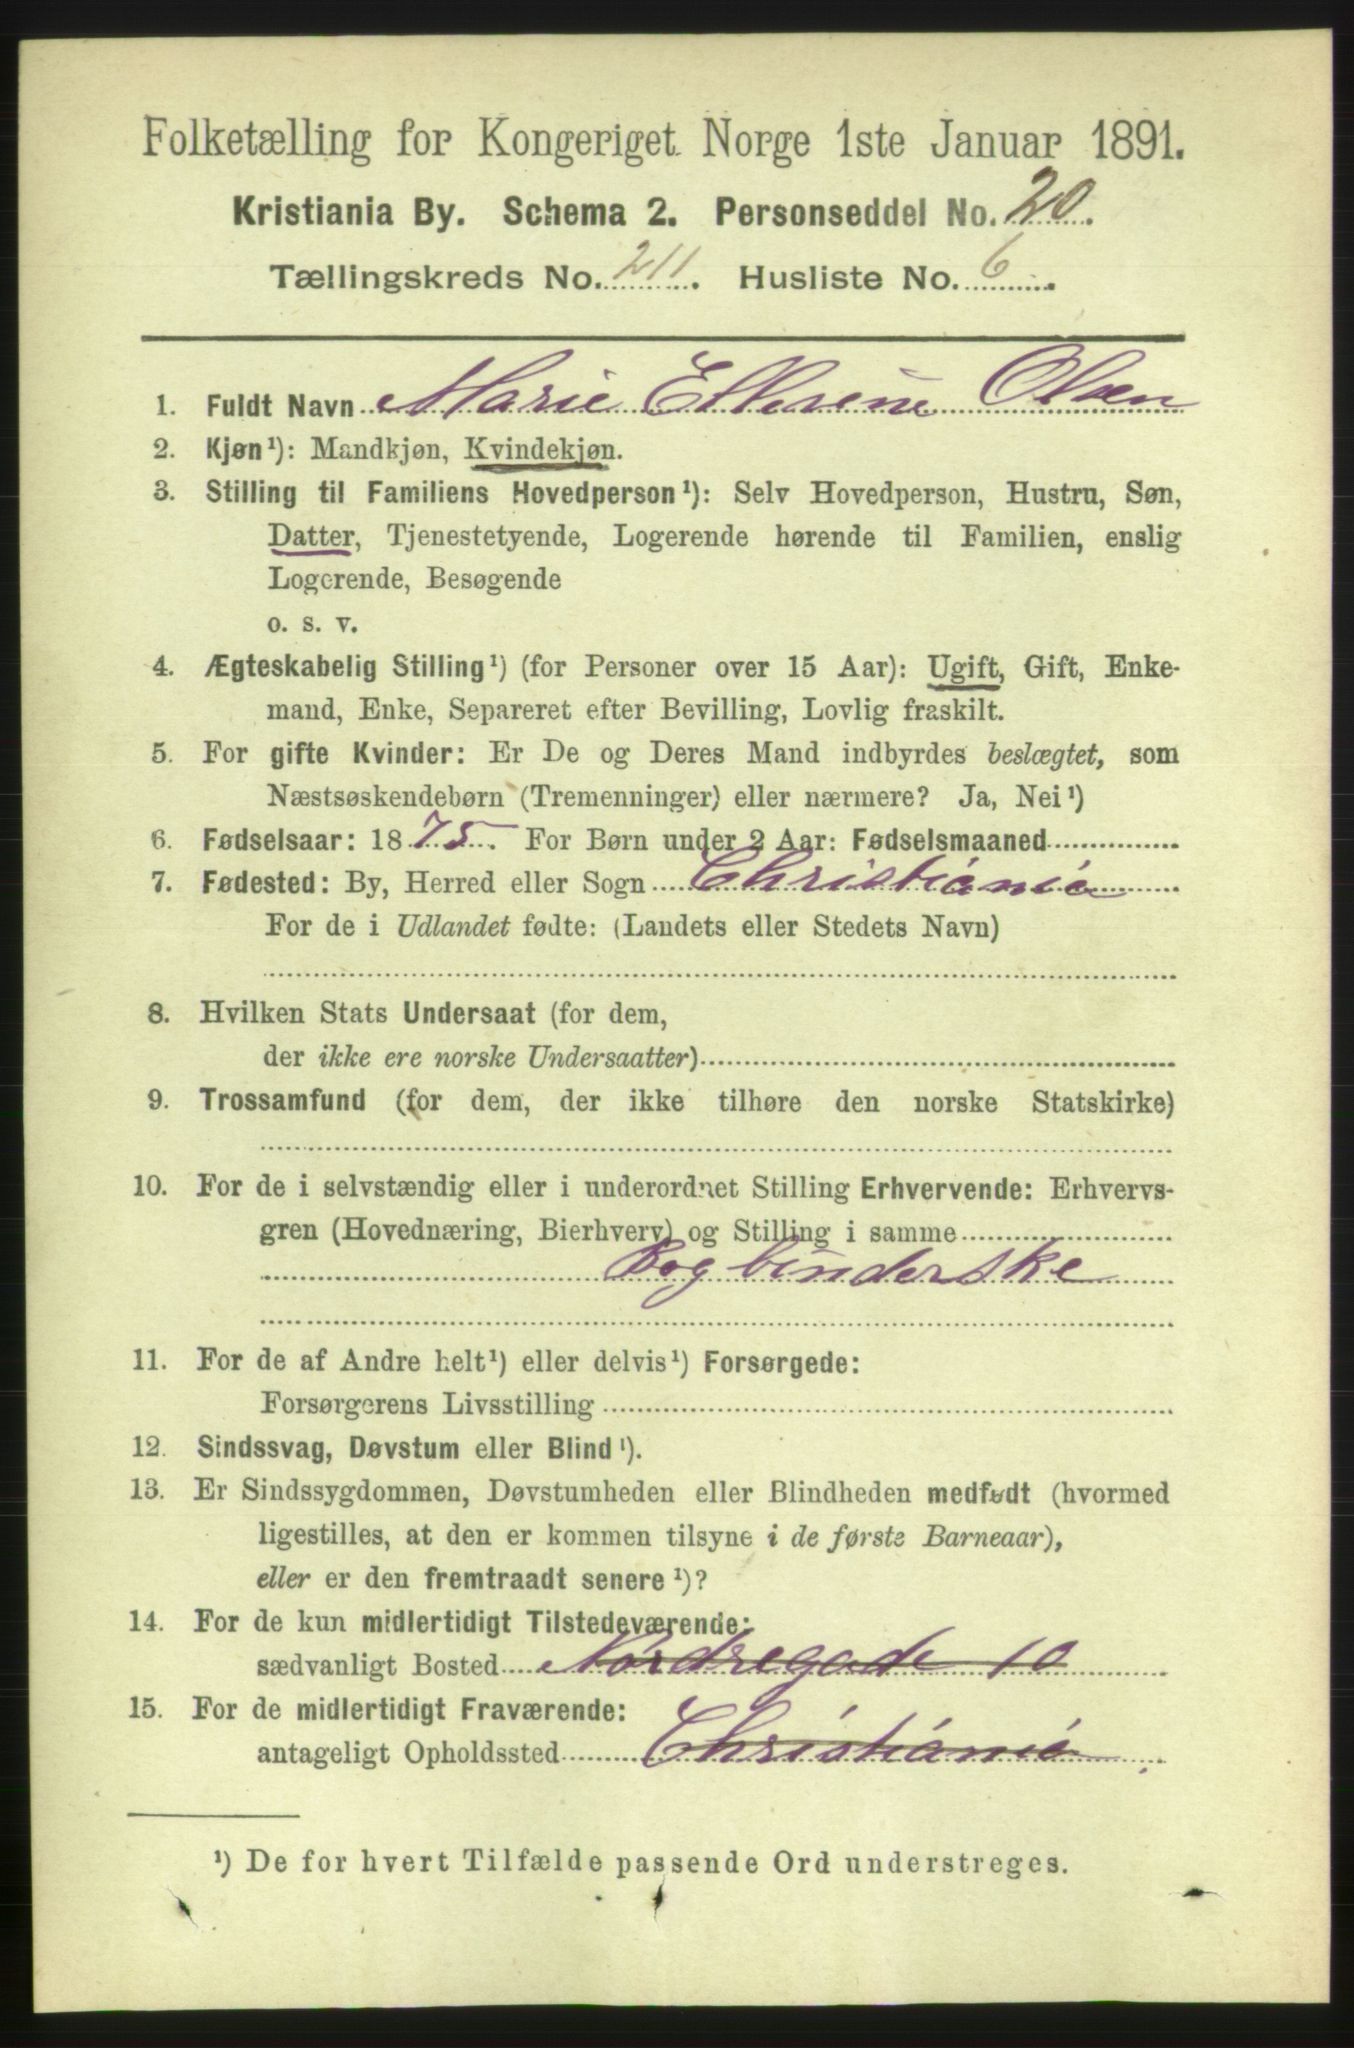 Folketælling for Kongeriget Norge 1ste Januar 1891.
Kristiania By. Schema 2. Personseddel No. 20.
Tællingskreds No. 211. Husliste No. 6.
1. Fuldt Navn Marie Olsen
2. Kjøn¹): Mandkjøn, Kvindekjøn.
3. Stilling til Familiens Hovedperson¹): Selv Hovedperson, Hustru, Søn,
Datter, Tjenestetyende, Logerende hørende til Familien, enslig
Logerende, Besøgende
o. s. v.
4. Ægteskabelig Stilling¹) (for Personer over 15 Aar): Ugift, Gift, Enke-
mand, Enke, Separeret efter Bevilling, Lovlig fraskilt.
5. For gifte Kvinder: Er De og Deres Mand indbyrdes beslægtet, som
Næstsøskendebørn (Tremenninger) eller nærmere? Ja, Nei¹)
6. Fødselsaar: 1875. For Børn under 2 Aar: Fødselsmaaned
7. Fødested: By, Herred eller Sogn Christiania
For de i Udlandet fødte: (Landets eller Stedets Navn)
8. Hvilken Stats Undersaat (for dem,
der ikke ere norske Undersaatter)
9. Trossamfund (for dem, der ikke tilhøre den norske Statskirke)
10. For de i selvstændig eller i underordnet Stilling Erhvervende: Erhvervs-
gren (Hovednæring, Bierhverv) og Stilling i samme
Bogbinderske
11. For de af Andre helt¹) eller delvis¹) Forsørgede:
Forsørgerens Livsstilling
12. Sindssvag, Døvstum eller Blind¹).
13. Er Sindssygdommen, Døvstumheden eller Blindheden medfødt (hvormed
ligestilles, at den er kommen tilsyne i de første Barneaar),
eller er den fremtraadt senere¹)?
14. For de kun midlertidigt Tilstedeværende:
sædvanligt Bosted Nordregade 10
15. For de midlertidigt Fraværende:
antageligt Opholdssted Christiania.
¹) De for hvert Tilfælde passende Ord understreges.